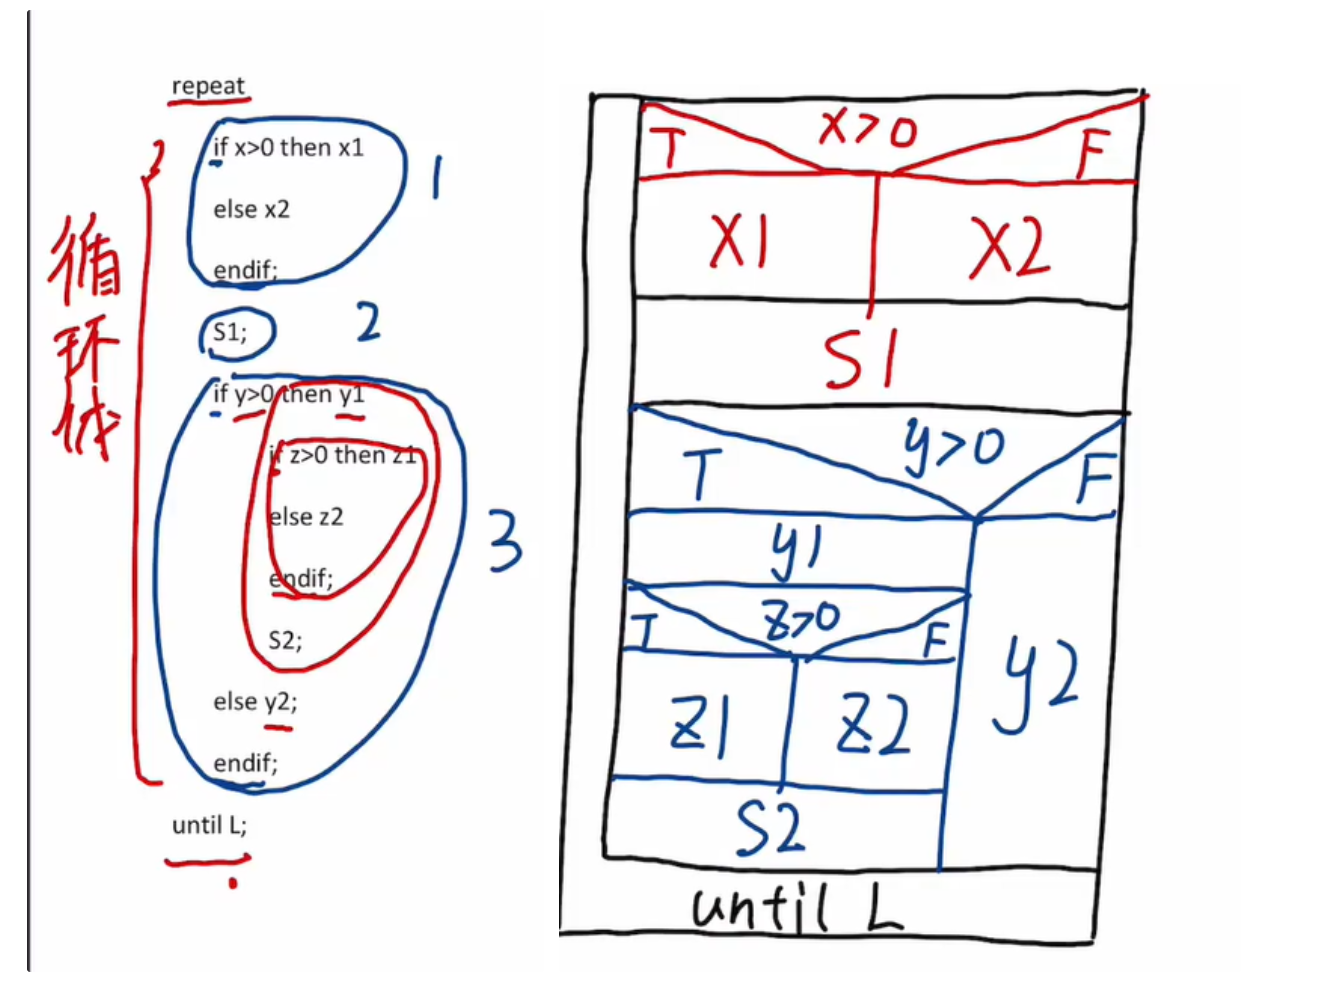 repeat
if x>0 then x1
else x2
endif;
1
S1;
2
if y>0 then y1
if z>0 then z1
else z2
endif;
S2;
else y2;
endif;
3
until L;
循
环
体
T x>0 F
X1 X2
S1
T y>0 F
y1
T z>0 F
Z1 Z2
y2
S2
until L